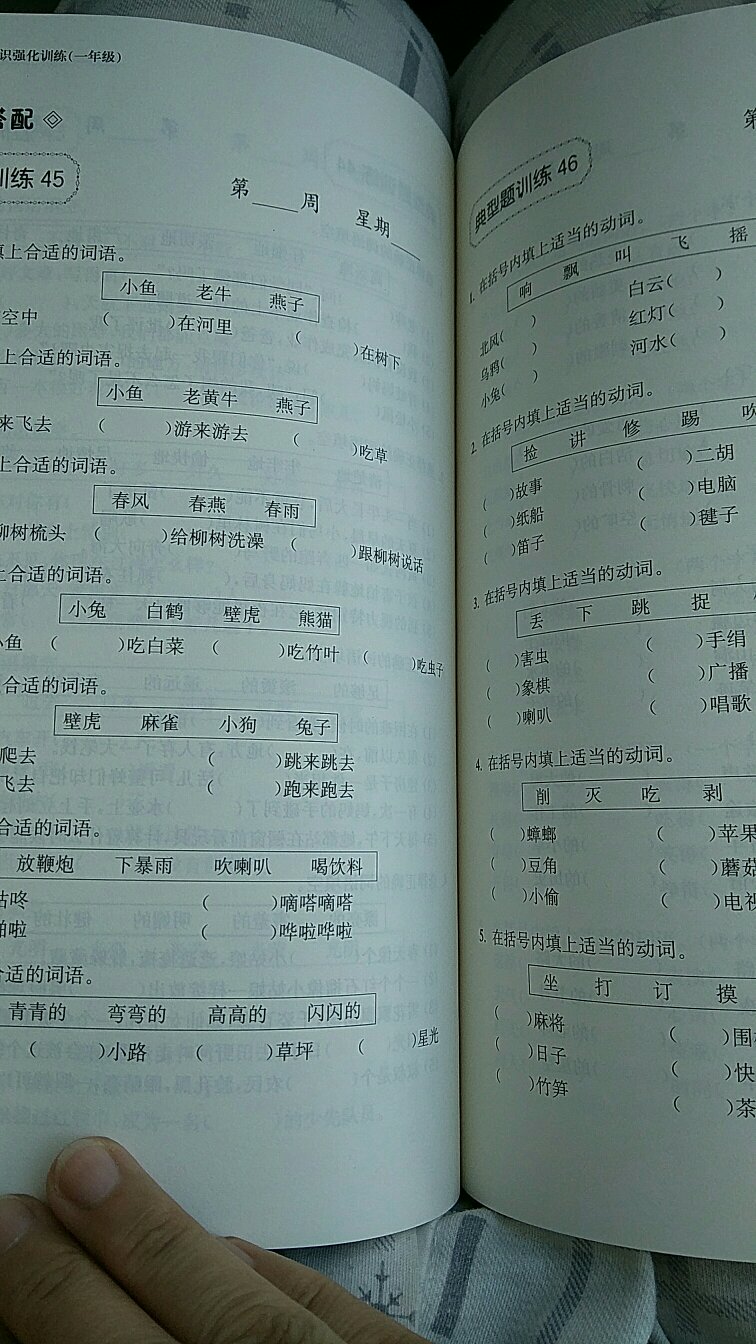 识强化训练(一年级)
搭配
训练 45
第____周 星期____
填上合适的词语。
小鱼 老牛 燕子
空中 ( )在河里 ( )在树下
上合适的词语。
小鱼 老黄牛 燕子
来飞去 ( )游来游去 ( )吃草
上合适的词语。
春风 春燕 春雨
柳树梳头 ( )给柳树洗澡 )跟柳树说话
上合适的词语。
小兔 白鹤 壁虎 熊猫
小鱼 ( )吃白菜 ( )吃竹叶 ( )吃虫子
合适的词语。
壁虎 麻雀 小狗 兔子
爬去 ( )跳来跳去
飞去 ( )跑来跑去
合适的词语。
放鞭炮 下暴雨 吹喇叭 喝饮料
咕咚 ( )嘀嗒嘀嗒
啪啦 ( )哗啦哗啦
合适的词语。
青青的 弯弯的 高高的 闪闪的
( )小路 ( )草坪 ( )星光
第
典型题训练 46
1. 在括号内填上适当的动词。
响 飘 叫 飞 摇
北风( ) 白云( )
乌鸦( ) 红灯( )
小兔( ) 河水( )
2. 在括号内填上适当的动词。
捡 讲 修 踢 吹
( )故事 ( )二胡
( )纸船 ( )电脑
( )笛子 ( )毽子
3. 在括号内填上适当的动词。
丢 下 跳 捉
( )害虫 ( )手绢
( )象棋 ( )广播
( )喇叭 ( )唱歌
4. 在括号内填上适当的动词。
削 灭 吃 剥
( )蟑螂 ( )苹果
( )豆角 ( )蘑菇
( )小偷 ( )电视
5. 在括号内填上适当的动词。
坐 打 订 摸
( )麻将 ( )围
( )日子 ( )快
( )竹笋 ( )茶